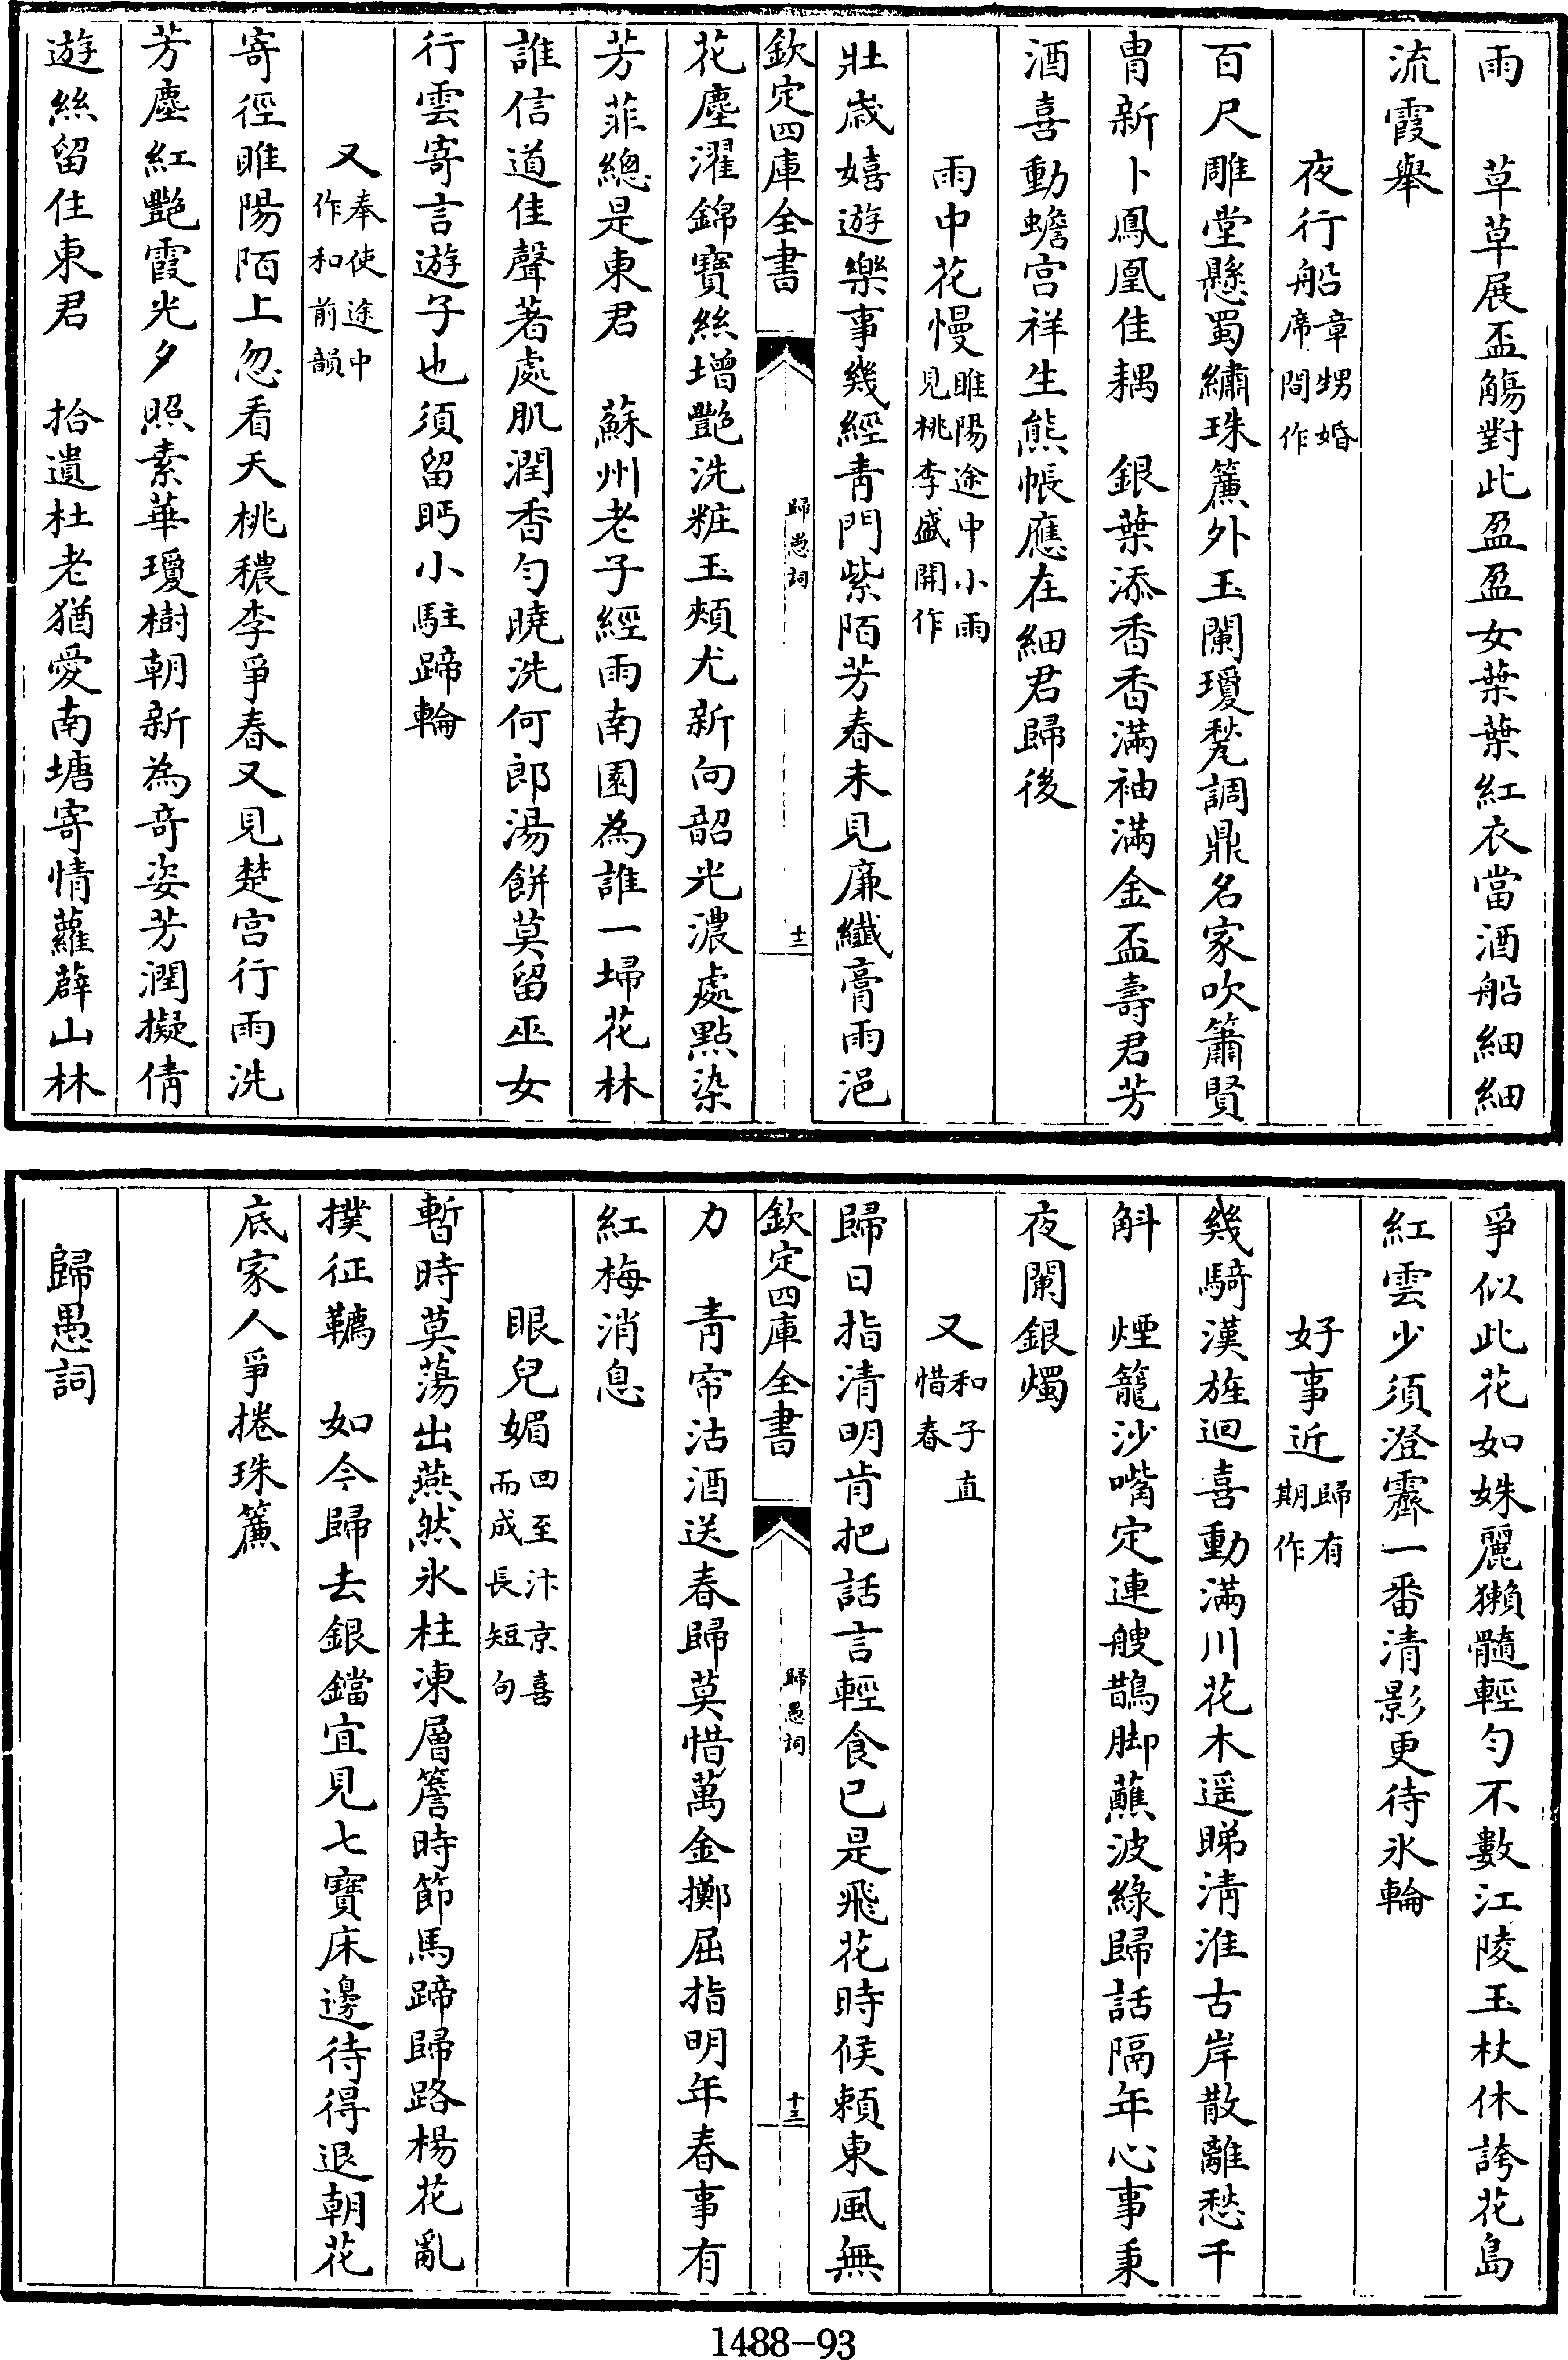 雨　草草展盃觴對此盈盈女葉葉紅衣當酒船細細
流霞舉
夜行船章甥婚席間作
百尺雕堂懸蜀繡珠簾外玉闌瓊甃調鼎名家吹簫賢
胄新卜鳳凰佳耦　銀葉添香香滿袖滿金盃壽君芳
酒喜動蟾宫祥生熊帳應在細君歸後
雨中花慢睢陽途中小雨見桃李盛開作
壯歲嬉遊樂事幾經青門紫陌芳春未見廉纖膏雨浥
欽定四庫全書
歸愚詞
十二
花塵濯錦寶絲增艷洗粧玉頰尤新向韶光濃處點染
芳菲總是東君　蘇州老子經雨南園為誰一埽花林
誰信道佳聲著處肌潤香勻曉洗何郎湯餅莫留巫女
行雲寄言遊子也須留眄小駐蹄輪
又奉使途中作和前韻
寄徑睢陽陌上忽看夭桃穠李爭春又見楚宫行雨洗
芳塵紅艷霞光夕照素華瓊樹朝新為竒姿芳潤擬倩
遊絲留住東君　拾遺杜老猶愛南塘寄情蘿薜山林
爭似此花如姝麗獺髓輕勻不數江陵玉杖休誇花島
紅雲少須澄霽一番清影更待氷輪
好事近歸有期作
幾騎漢旌迴喜動滿川花木遥睇清淮古岸散離愁千
斛　煙籠沙嘴定連艘鵲脚蘸波綠歸話隔年心事秉
夜闌銀燭
又和子直惜春
歸日指清明肯把話言輕食已是飛花時候賴東風無
欽定四庫全書
歸愚詞
十三
力　青帘沽酒送春歸莫惜萬金擲屈指明年春事有
紅梅消息
眼兒媚回至汴京喜而成長短句
暫時莫蕩出燕然氷柱凍層簷時節馬蹄歸路楊花亂
撲征韉　如今歸去銀鐺宜見七寶床邊待得退朝花
底家人爭捲珠簾
歸愚詞
1488-93